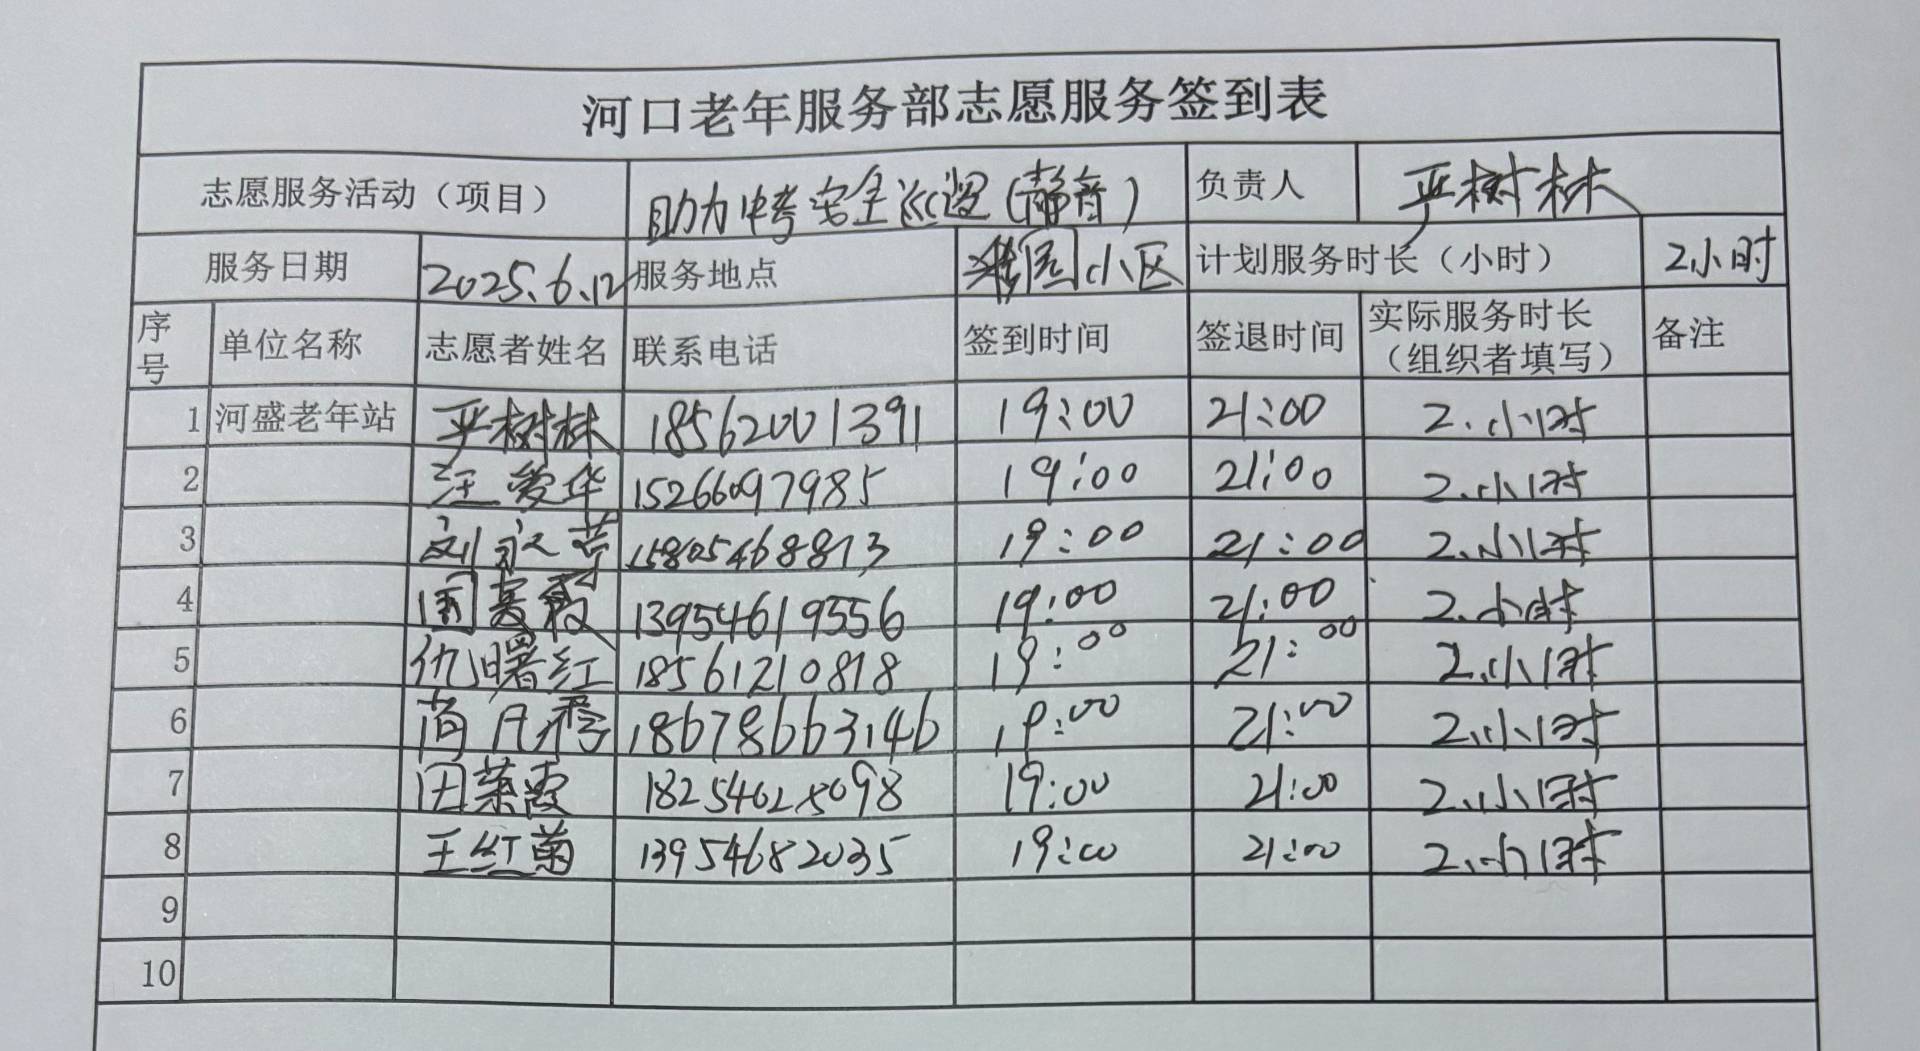 河口老年服务部志愿服务签到表
志愿服务活动（项目） 助力中考安全巡逻(静音) 负责人 严树林
服务日期 2025.6.12 服务地点 雅园小区 计划服务时长（小时） 2小时
序号 单位名称 志愿者姓名 联系电话 签到时间 签退时间 实际服务时长（组织者填写） 备注
1 河盛老年站 严树林 18562001391 19:00 21:00 2.小时
2 汪爱华 15266097985 19:00 21:00 2.小时
3 15805468813 19:00 21:00 2.小时
4 13954619556 19:00 21:00 2.小时
5 仇曙红 18561210818 19:00 21:00 2.小时
6 18678663146 19:00 21:00 2.小时
7 田荣霞 18254625098 19:00 21:00 2.小时
8 王红菊 13954682035 19:00 21:00 2.小时
9
10